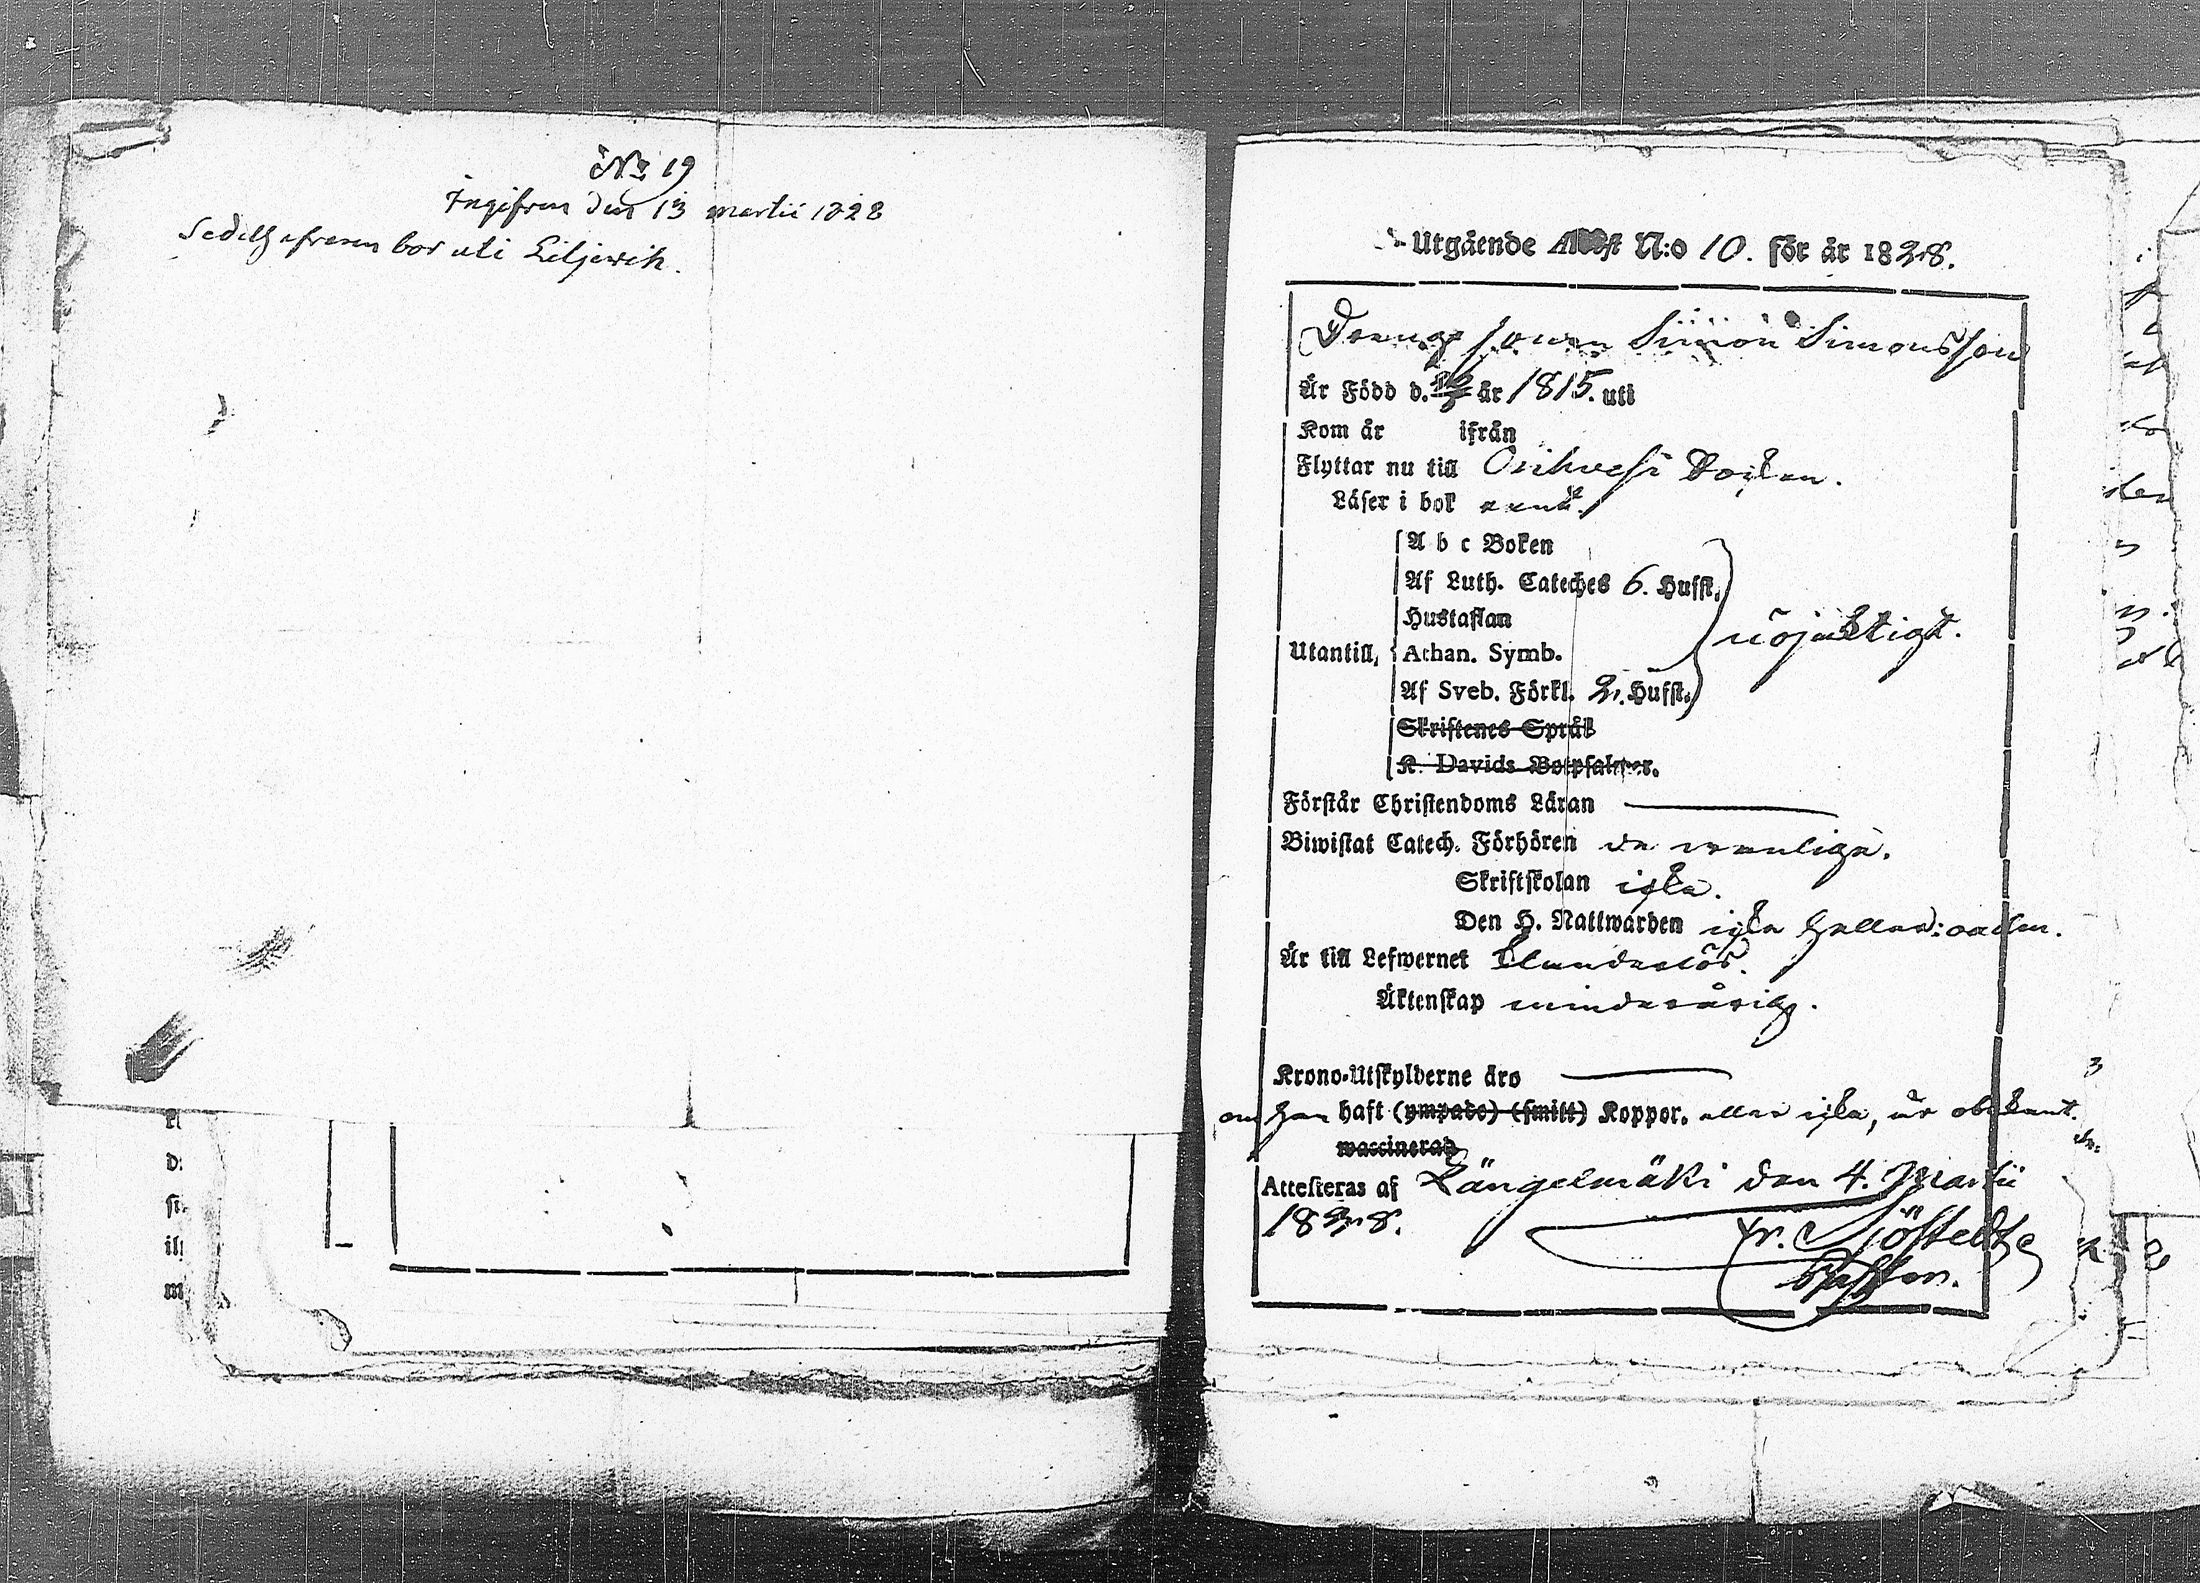 No 19
Ingifven den 13 martii 1828
Sedelhafvaren bor uti Liljewik.
Utgående Attest N:o 10. för år 1828.
Drengssonen Simon Simonsson
Är Född d. år 1815. uti
Kom år ifrån
Flyttar nu till Orihvesi Socken.
Läser i bok rent.
A b c Boken
Af Luth. Cateches 6. Hufst.
Hustaflan
nöjaktigt.
Utantill, Athan. Symb.
Af Sveb. Förkl. 2. Hufst.
Skriftenes Språk
K. Davids Botpsalmer.
Förstår Christendoms Läran
Biwistat Catech. Förhören de vanliga.
Skriftskolan icke.
Den H. Nattwarden icke heller:
Är till Lefwernet klanderlös.
Äktenskap minderårig.
Krono-Utskylderne äro
om han haft (ympade) (smitt) Koppor. eller icke, är obekant.
waccinerad
Attesteras af Längelmäki den 4. Martii
1828. Fr. Sjöstedt
Pastor.